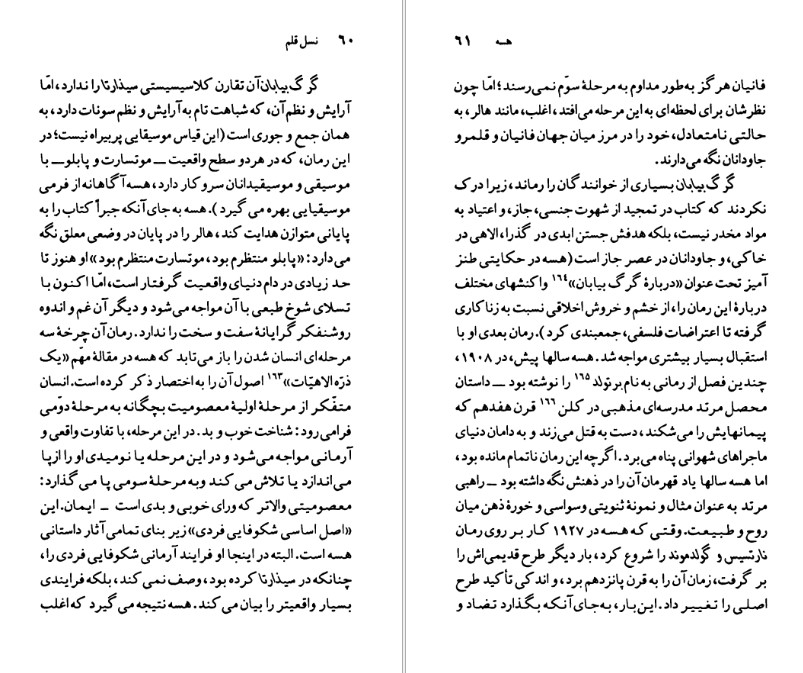 ۶۰ نسل قلم
گرگ بیابان آن تقارن کلاسیسیستی سیذارتا را ندارد، امّا
آرایش و نظم آن، که شباهت تام به آرایش و نظم سونات دارد، به
همان جمع و جوری است (این قیاس موسیقایی پربیراه نیست؛ در
این رمان، که در هر دو سطح واقعیت ــ موتسارت و پابلو ــ با
موسیقی و موسیقیدانان سر و کار دارد، هسه آگاهانه از فرمی
موسیقیایی بهره می گیرد). هسه به جای آنکه جبراً کتاب را به
پایانی متوازن هدایت کند، هالر را در پایان در وضعی معلق نگه
می‌دارد: «پابلو منتظرم بود، موتسارت منتظرم بود» او هنوز تا
حد زیادی در دام دنیای واقعیت گرفتار است، امّا اکنون با
تسلای شوخ طبعی با آن مواجه می‌شود و دیگر آن غم و اندوه
روشنفکر گرایانهٔ سفت و سخت را ندارد. رمان آن چرخهٔ سه
مرحله‌ای انسان شدن را باز می‌تابد که هسه در مقالهٔ مهّم «یک
ذرّه الاهیّات»۱۶۳ اصول آن را به اختصار ذکر کرده است. انسان
متفّکر از مرحلهٔ اولیهٔ معصومیت بچگانه به مرحلهٔ دوّمی
فرا می‌رود: شناخت خوب و بد. در این مرحله، با تفاوت واقعی و
آرمانی مواجه می‌شود و در این مرحله یا نومیدی او را از پا
می‌اندازد یا تلاش می کند و به مرحلهٔ سومی پا می گذارد:
معصومیتی والاتر که ورای خوبی و بدی است ــ ایمان. این
«اصل اساسی شکوفایی فردی» زیر بنای تمامی آثار داستانی
هسه است. البته در اینجا او فرایند آرمانی شکوفایی فردی را،
چنانکه در سیذارتا کرده بود، وصف نمی کند، بلکه فرایندی
بسیار واقعیتر را بیان می کند. هسه نتیجه می گیرد که اغلب
هسه ۶۱
فانیان هرگز به‌طور مداوم به مرحلهٔ سوّم نمی‌رسند؛ امّا چون
نظرشان برای لحظه‌ای به این مرحله می‌افتد، اغلب، مانند هالر، به
حالتی نامتعادل، خود را در مرز میان جهان فانیان و قلمرو
جاودانان نگه می‌دارند.
گرگ بیابان بسیاری از خوانندگان را رماند، زیرا درک
نکردند که کتاب در تمجید از شهوت جنسی، جاز، و اعتیاد به
مواد مخدر نیست، بلکه هدفش جستن ابدی در گذرا، الاهی در
خاکی، و جاودانان در عصر جاز است (هسه در حکایتی طنز
آمیز تحت عنوان «دربارهٔ گرگ بیابان»۱۶۴ واکنشهای مختلف
دربارهٔ این رمان را، از خشم و خروش اخلاقی نسبت به زناکاری
گرفته تا اعتراضات فلسفی، جمعبندی کرد). رمان بعدی او با
استقبال بسیار بیشتری مواجه شد. هسه سالها پیش، در ۱۹۰۸،
چندین فصل از رمانی به نام برتولد۱۶۵ را نوشته بود ــ داستان
محصل مرتد مدرسه‌ای مذهبی در کلن۱۶۶ قرن هفدهم که
پیمانهایش را می‌شکند، دست به قتل می‌زند و به دامان دنیای
ماجراهای شهوانی پناه می‌برد. اگرچه این رمان ناتمام مانده بود،
اما هسه سالها یاد قهرمان آن را در ذهنش نگه داشته بود ــ راهبی
مرتد به عنوان مثال و نمونهٔ ثنویتی وسواسی و خورهٔ ذهن میان
روح و طبیعت. وقتی که هسه در ۱۹۲۷ کار بر روی رمان
نارتسیس و گولدموند را شروع کرد، بار دیگر طرح قدیمی‌اش را
بر گرفت، زمان آن را به قرن پانزدهم برد، و اندکی تأکید طرح
اصلی را تغییر داد. این‌بار، به‌جای آنکه بگذارد تضاد و